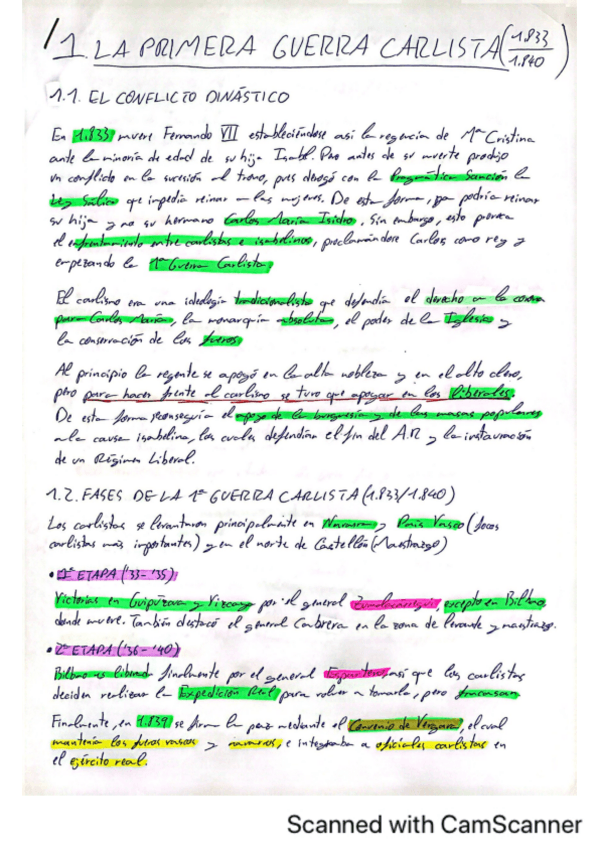 1. LA PRIMERA GUERRA CARLISTA (1.833/1.840)
1.1. EL CONFLICTO DINÁSTICO
En 1.833 muere Fernando VII estableciéndose así la regencia de Mª Cristina
ante la minoría de edad de su hija Isabel. Pero antes de su muerte produjo
un conflicto en la sucesión al trono, pues derogó con la Pragmática Sanción la
Ley Sálica que impedía reinar a las mujeres. De esta forma, ya podría reinar
su hija y no su hermano Carlos María Isidro. Sin embargo, esto provoca
el enfrentamiento entre carlistas e isabelinos, proclamándose Carlos como rey y
empezando la 1ª Guerra Carlista.
El carlismo era una ideología tradicionalista que defendía el derecho a la corona
para Carlos María, la monarquía absoluta, el poder de la Iglesia y
la conservación de los fueros.
Al principio la regente se apoyó en la alta nobleza y en el alto clero,
pero para hacer frente al carlismo se tuvo que apoyar en los liberales.
De esta forma conseguía el apoyo de la burguesía y de las masas populares
a la causa isabelina, los cuales defendían el fin del A.R y la instauración
de un Régimen Liberal.
1.2. FASES DE LA 1ª GUERRA CARLISTA (1.833/1.840)
Los carlistas se levantaron principalmente en Navarra y País Vasco (focos
carlistas más importantes) y en el norte de Castellón (Maestrazgo)
• 1ª ETAPA ('33-'35):
Victorias en Guipúzcoa y Vizcaya por el general Zumalacárregui, excepto en Bilbao,
donde muere. También destacó el general Cabrera en la zona de levante y maestrazgo.
• 2ª ETAPA ('36-'40)
Bilbao es liberada finalmente por el general Espartero, así que los carlistas
deciden realizar la Expedición Real para volver a tomarla, pero fracasan
Finalmente, en 1.839 se firma la paz mediante el Convenio de Vergara, el cual
mantenía los fueros vascos y navarros, e integraba a oficiales carlistas en
el ejército real.
Scanned with CamScanner